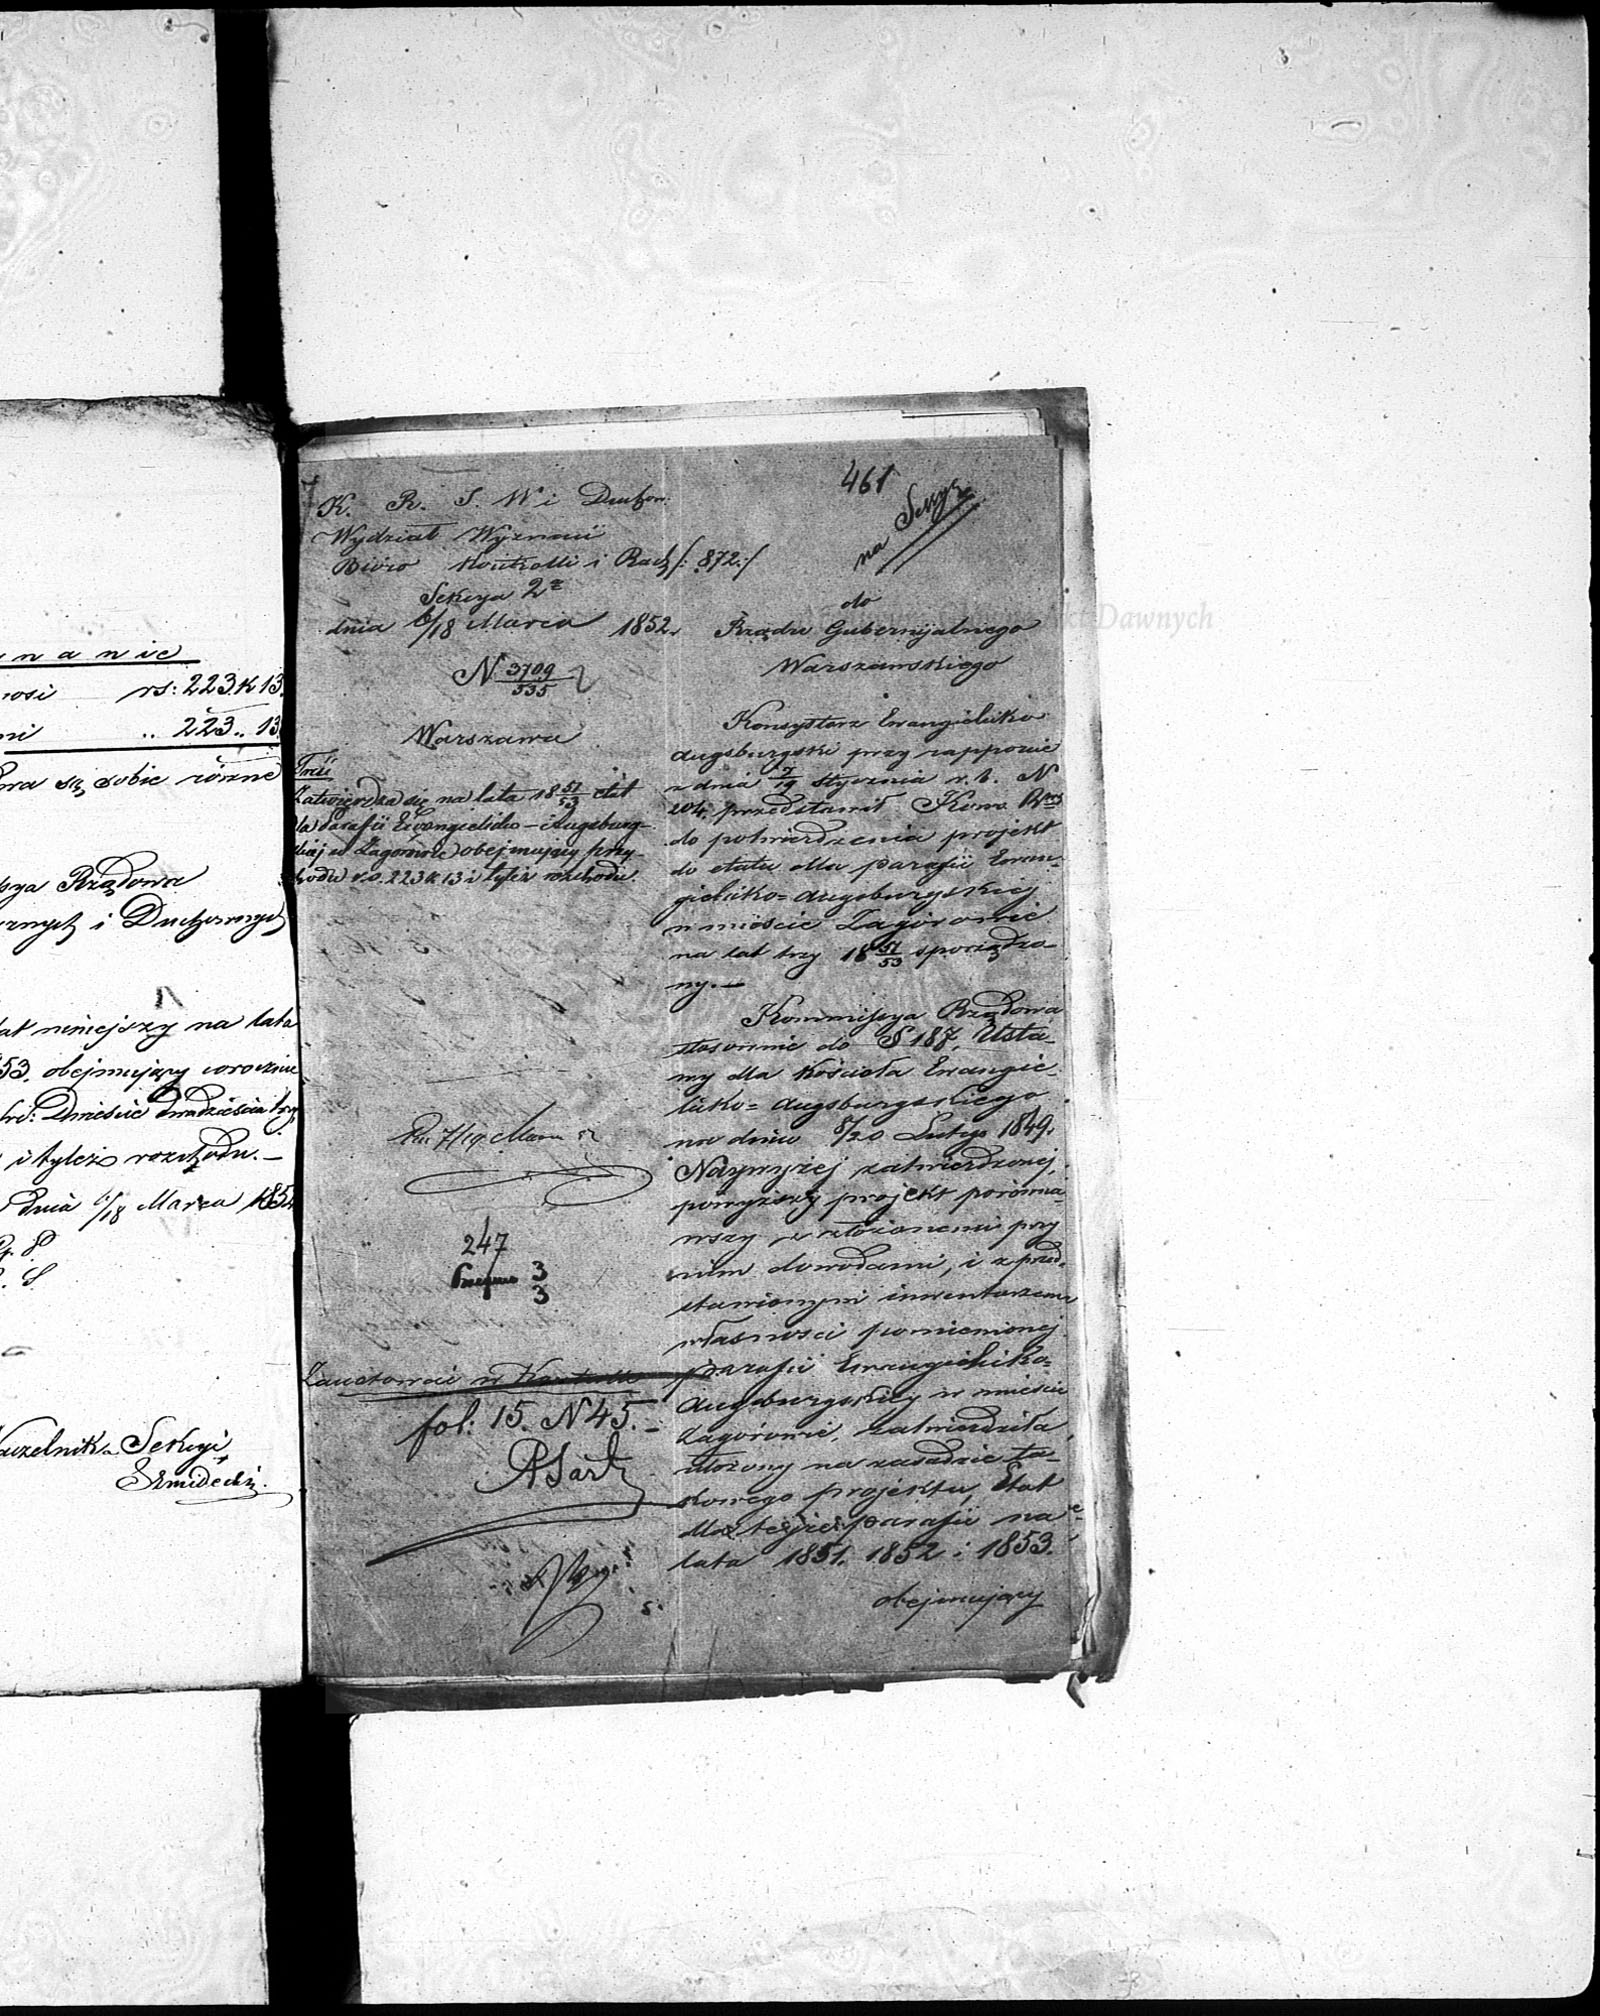 n a n i e
rs: 223 k 13.
.. 223 .. 13
się sobie równe
Rządowa
i Duchownych
niniejszy na lata
53. obejmujący corocznie
Dwieście dwadzieścia trzy
i tyleż rozchodu. —
dnia 6/18 Marca 185
Naczelnik Sekcyi
461
na Sekcyę
K. R. S. W i Duchow:
Wydział Wyznań
Bióro Kontrolli i Rach /: 872 :/
Sekcya 2a
dnia 6/18 Marca 1852.
N 3709/535
Warszawa
Treść
Zatwierdza się na lata 18 51/53 etat
dla Parafii Ewangielicko-Augsburg-
skiej w Zagórowie obejmujący przy-
chodu r.s. 223 k 13 i tyleż rozchodu.
7/19 Marca 52
247
3
3
Zanotować w Kontrolli
fol: 15. N 45. —
do
Rządu Gubernijalnego
Warszawskiego
Konsystorz Ewangielicko
Augsburgski przy rapporcie
z dnia 7/19 Stycznia r. b. N
204. przedstawił Kom. Rząd
do potwierdzenia projekt
do etatu dla parafii Ewan-
gielicko=Augsburgskiej
w mieście Zagórowie
na lat trzy 18 51/53 sporządzo-
ny. —
Kommissya Rządowa
stosownie do § 187. Usta-
wy dla Kościoła Ewangie-
licko=Augsburgskiego
w dniu 8/20 Lutego 1849.
Najwyżej zatwierdzonej,
powyższy projekt porówna-
wszy z złożonemi przy
nim dowodami, i z przed-
stawionym inwentarzem
własności pomienionej
parafii Ewangielicko=
Augsburgskiej w mieście
Zagórowie, zatwierdziła
ułożony na zasadzie ta-
kowego projektu, Etat
dla tejże parafii na
lata 1851. 1852 i 1853.
obejmujący
Akt Dawnych